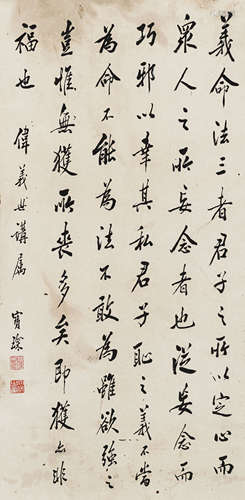 義命法三者君子之所以定心而
眾人之所妄念者也從妄念而
巧邪以幸其私君子恥之義不當
為命不能為法不敢為雖欲強之
豈惟無獲所喪多矣即獲亦非
福也
偉義世講屬
寶瑑